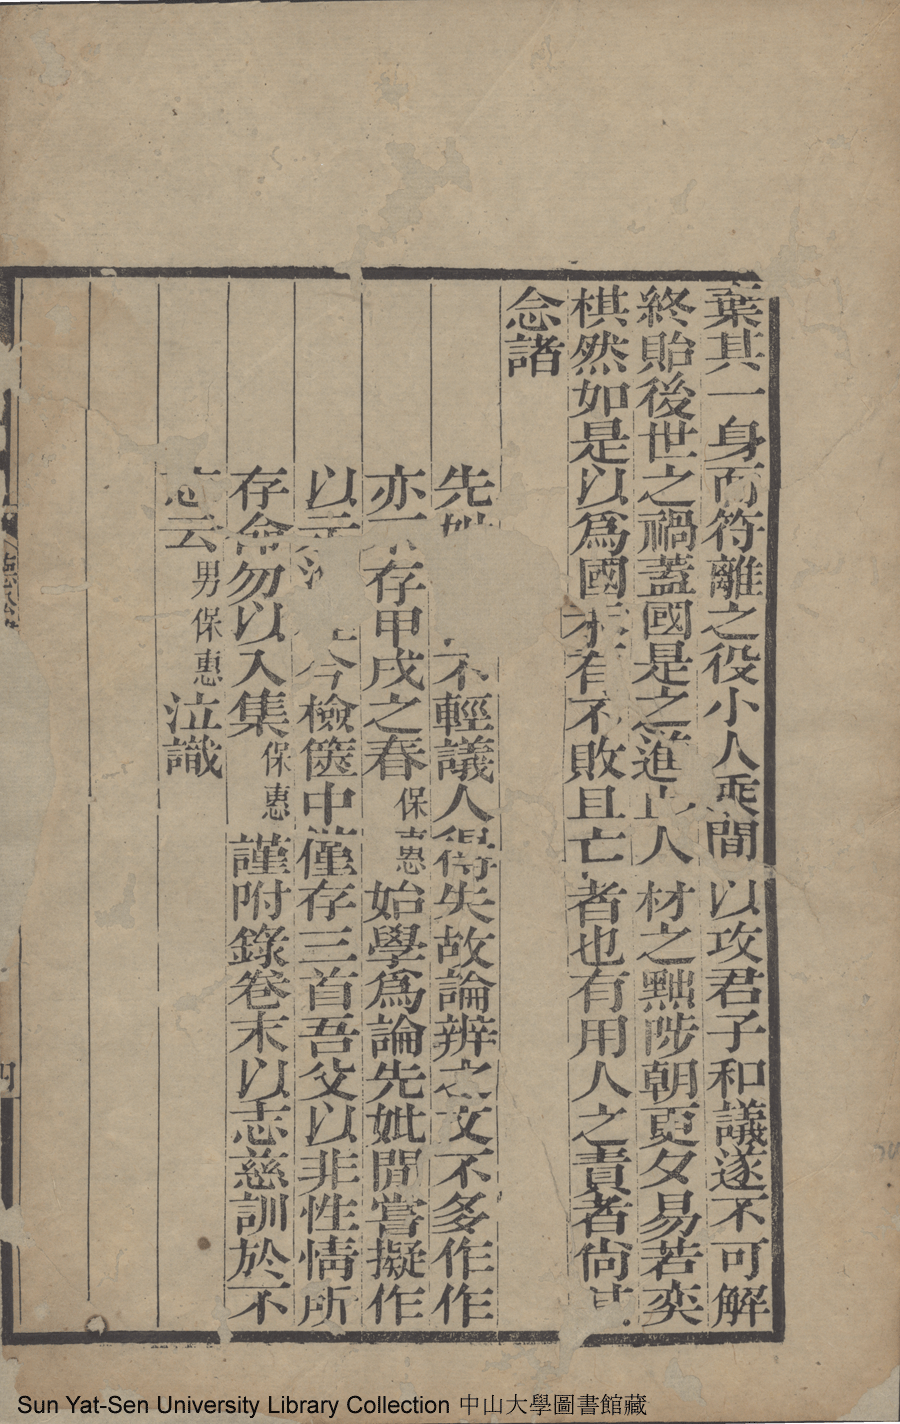 棄其一身而符離之役小人乘間以攻君子和議遂不可解
終貽後世之禍蓋國是之進人材之黜陟朝更夕易若奕
棋然如是以爲國未有不敗且亡者也有用人之責者尙其
念諸
先妣不輕議人得失故論辨之文不多作作
亦不存甲戌之春保惠始學爲論先妣閒嘗擬作
以示今檢篋中僅存三首吾父以非性情所
存命勿以入集保惠謹附錄卷末以志慈訓於不
忘云男保惠泣識
四
Sun Yat-Sen University Library Collection 中山大學圖書館藏